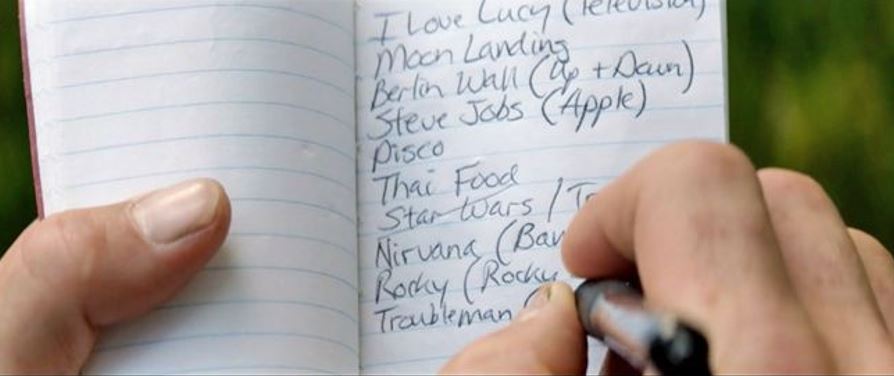 I Love Lucy (Television)
Moon Landing
Berlin Wall (Up + Down)
Steve Jobs (Apple)
Disco
Thai Food
Star Wars /
Nirvana (Ban
Rocky (Rocky
Troubleman (